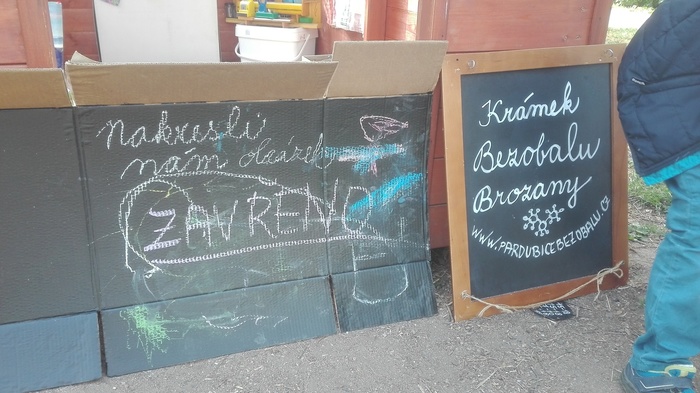 nakresli
nám obrázek
ZAVŘENO
Krámek
Bezobalu
Brozany
WWW.PARDUBICEBEZOBALU.CZ